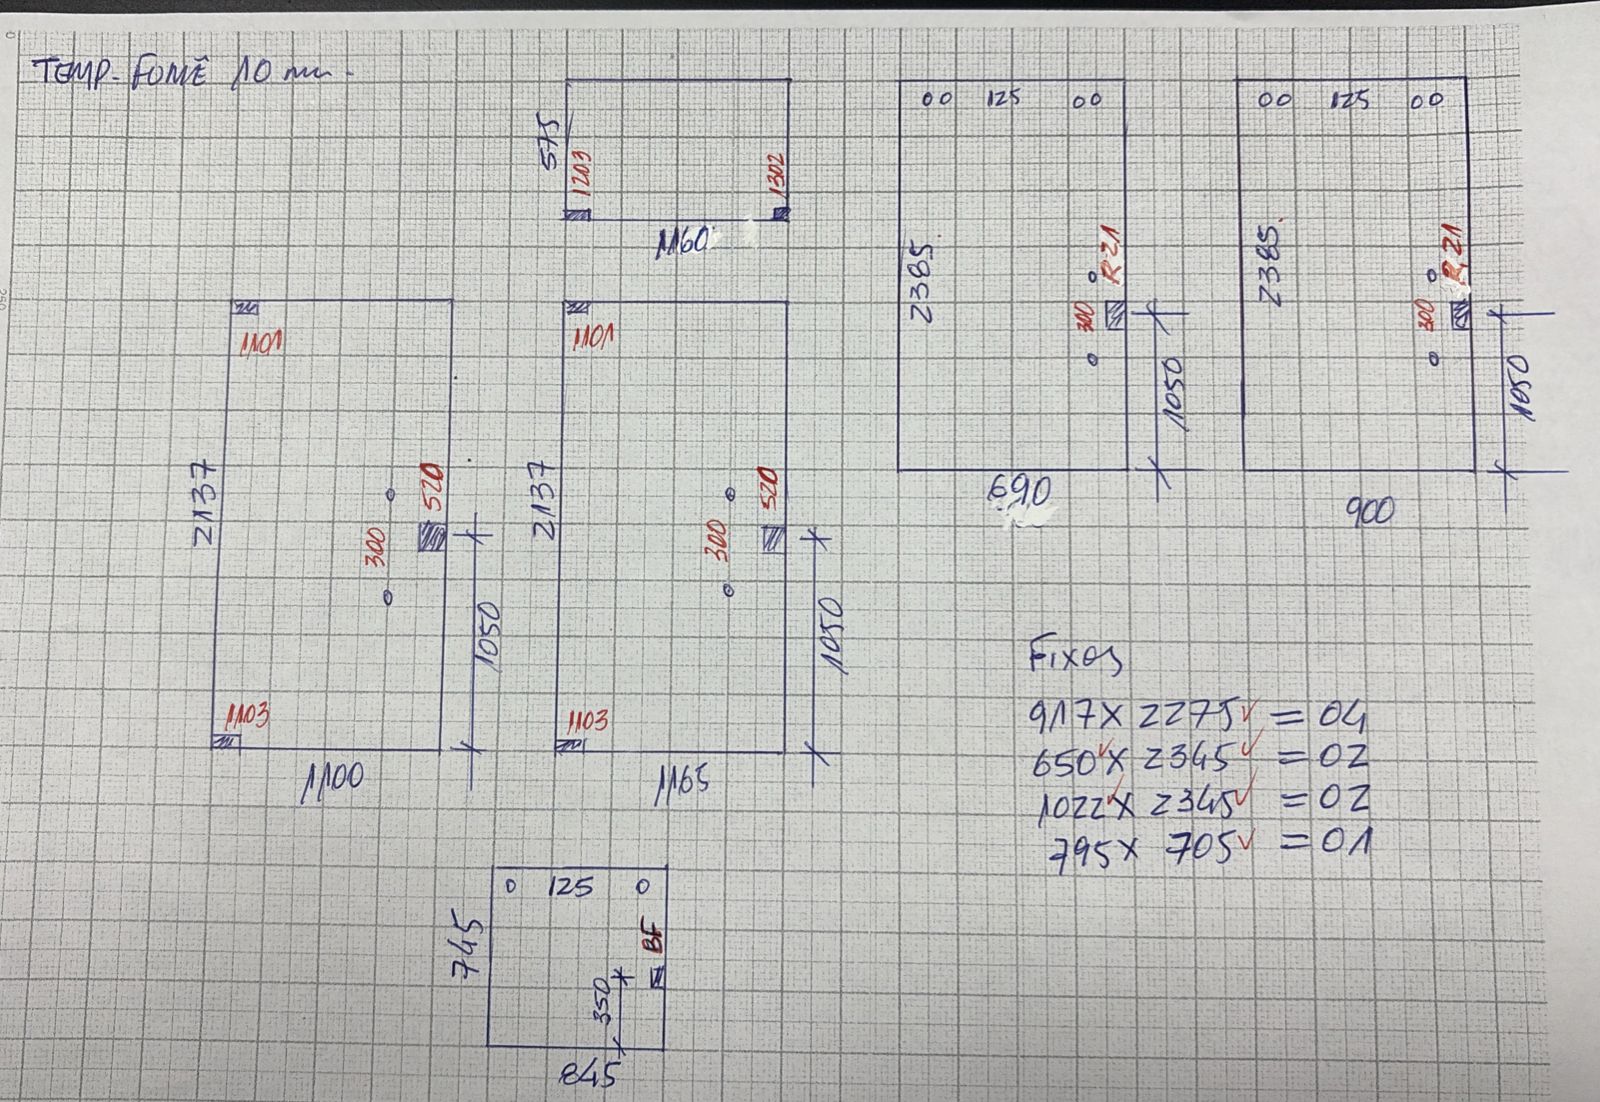 TEMP. FUMÊ 10 mm.
575
1203
1302
1160
125
2385.
R21
300
1050
690
125
2385.
R21
300
1050
900
1101
2137
300
520
1050
1103
1100
1101
2137
300
520
1050
1103
1165
Fixos
917 X 2275 ✓ = 04
650 ✓ X 2345 ✓ = 02
1022 ✓ X 2345 ✓ = 02
795 X 705 ✓ = 01
125
745
BF
350
845